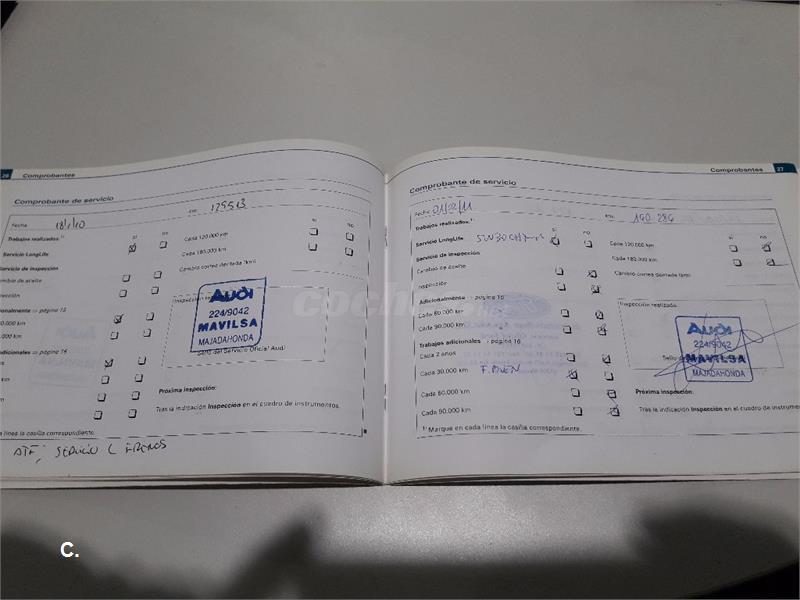 26 Comprobantes
Comprobante de servicio
Fecha 18/1/10 km: 125513
Trabajos realizados:¹⁾ sí no sí no
Servicio LongLife Cada 120.000 km
Cada 180.000 km
Servicio de inspección Cambio correa dentada (km)
Cambio de aceite
Inspección
Inspección
Audi
224/9042
MAVILSA
MAJADAHONDA
Sello del Servicio Oficial Audi
Adicionalmente ⇒ página 15
0.000 km
90.000 km
adicionales ⇒ página 16
km
km
km
Próxima inspección:
Tras la indicación Inspección en el cuadro de instrumentos.
a línea la casilla correspondiente.
ATF, SERVICIO FRENOS
Comprobantes 27
Comprobante de servicio
Fecha km: 140.284
Trabajos realizados:¹⁾ sí no sí no
Servicio LongLife 5W30 Cada 120.000 km
Cada 180.000 km
Servicio de inspección
Cambio de aceite Cambio correa dentada (km)
Inspección
Adicionalmente ⇒ página 15
Cada 60.000 km
Cada 90.000 km
Inspección realizada
Audi
224/9042
MAVILSA
MAJADAHONDA
Sello
Trabajos adicionales ⇒ página 16
Cada 2 años
Cada 30.000 km F. POLEN
Cada 60.000 km
Cada 90.000 km
Próxima inspección:
Tras la indicación Inspección en el cuadro de instrumentos.
¹⁾ Marque en cada línea la casilla correspondiente.
coches
C.